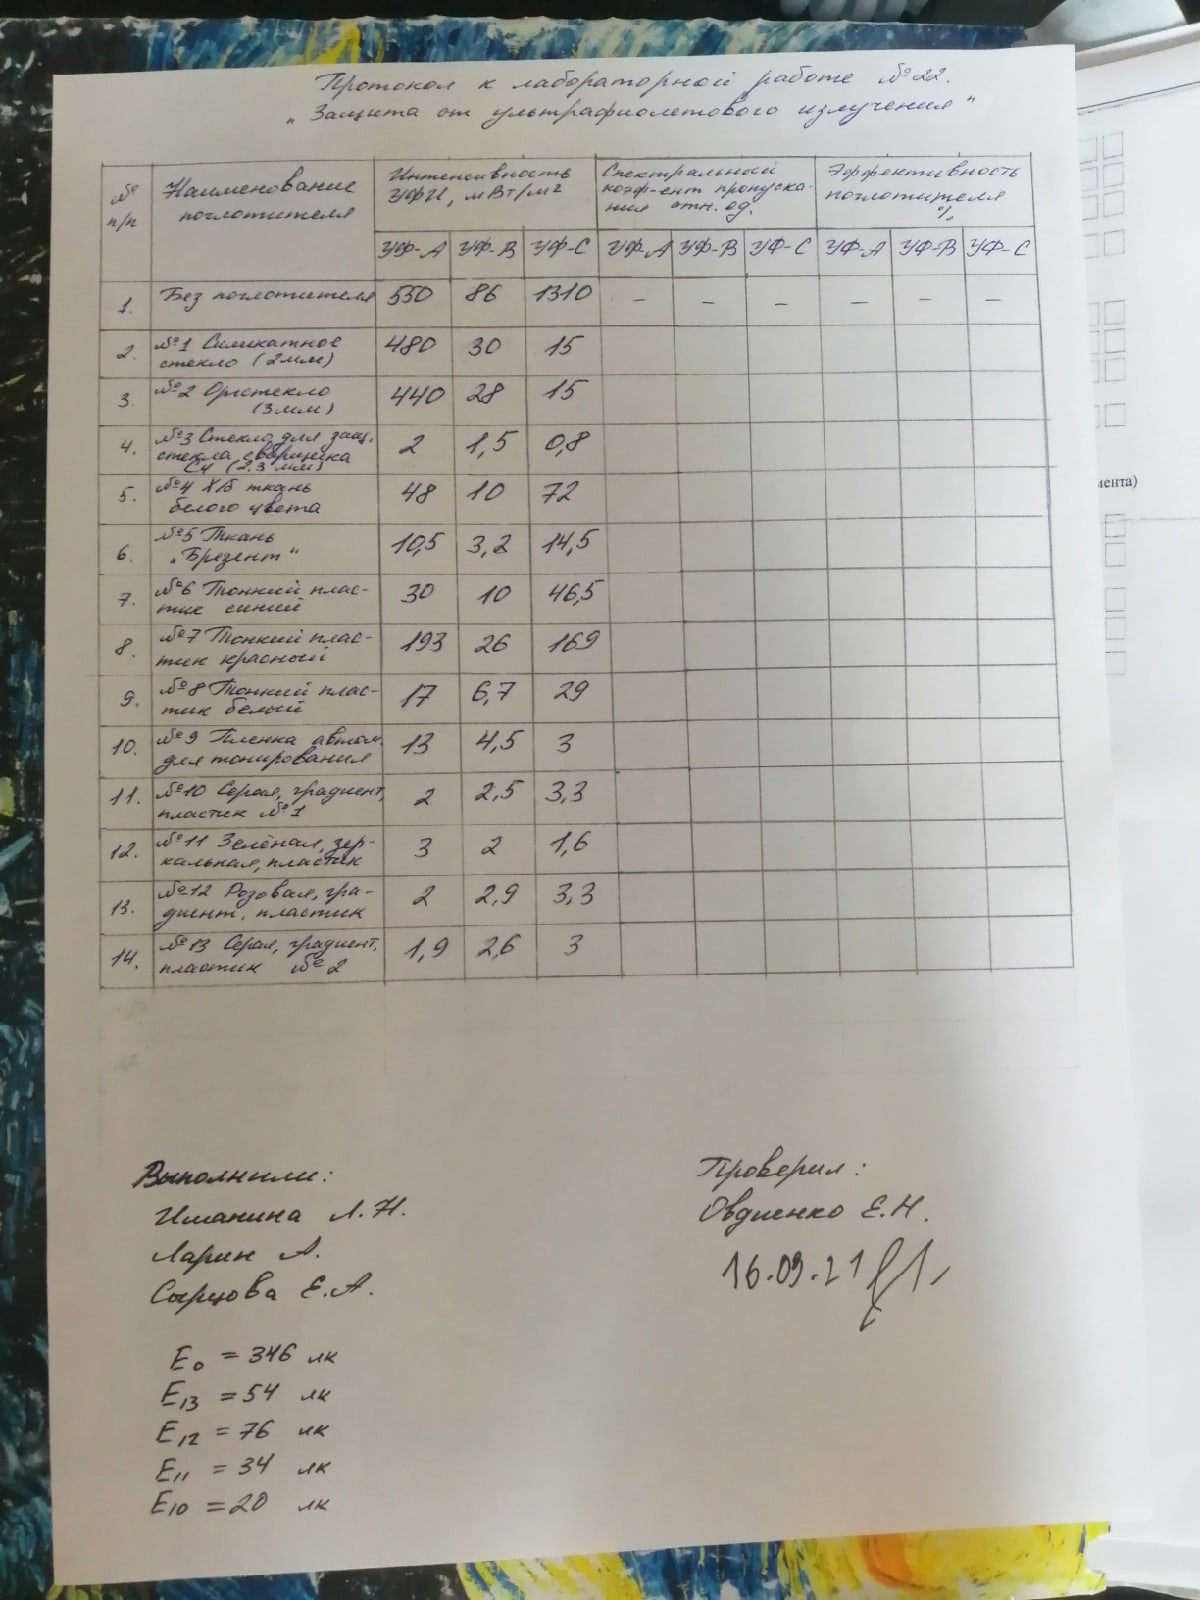 Протокол к лабораторной работе №22.
„Защита от ультрафиолетового излучения"
№ п/п
Наименование поглотителя
Интенсивность УФИ, мВт/м2
Спектральный коэф-ент пропускания отн. ед.
Эффективность поглотителя %
УФ-А УФ-В УФ-С УФ-А УФ-В УФ-С УФ-А УФ-В УФ-С
1. Без поглотителя 550 86 1310 – – – – – –
2. №1 Силикатное
стекло (2мм) 480 30 15
3. №2 Оргстекло
(3мм) 440 28 15
4. №3 Стекло для защ.
стекла сварщика
С4 (2.3 мм) 2 1,5 0,8
5. №4 Х/Б ткань
белого цвета 48 10 72
6. №5 Ткань
„Брезент" 10,5 3,2 14,5
7. №6 Тонкий плас-
тик синий 30 10 46,5
8. №7 Тонкий плас-
тик красный 193 26 169
9. №8 Тонкий плас-
тик белый 17 6,7 29
10. №9 Пленка автом.
для тонирования 13 4,5 3
11. №10 Серая, градиент,
пластик №1 2 2,5 3,3
12. №11 Зелёная, зер-
кальная, пластик 3 2 1,6
13. №12 Розовая, гра-
диент, пластик 2 2,9 3,3
14. №13 Серая, градиент,
пластик №2 1,9 2,6 3
Выполнили:
Иманина Л.Н.
Ларин А.
Сырцова Е.А.
Проверил:
Овдиенко Е.Н.
16.09.21
E0 = 346 лк
E13 = 54 лк
E12 = 76 лк
E11 = 34 лк
E10 = 20 лк
мента)